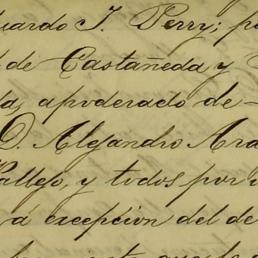 uardo J. Perry; p
de Castañeda y
da, apoderado de-
D. Alejandro Ara
Vallejo, y todos por
á excepcion del de